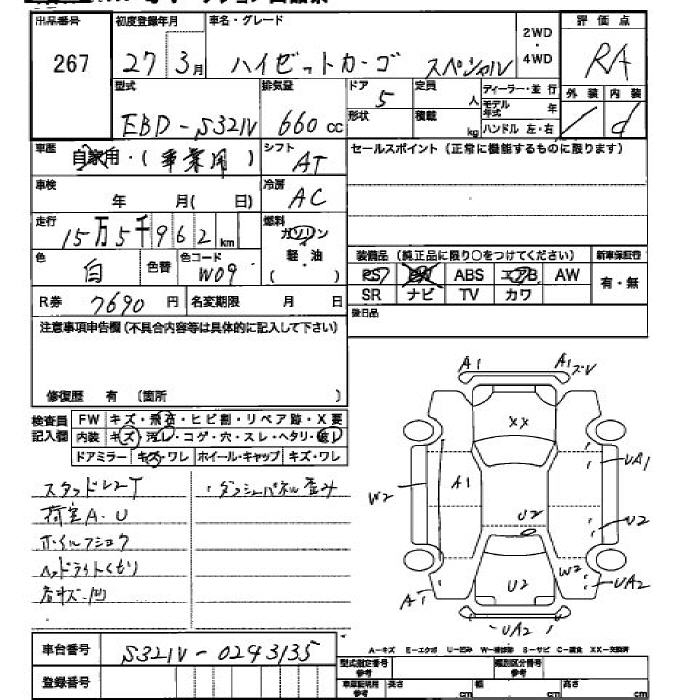 出品番号
267
初度登録年月
27 3月
車名・グレード
ハイゼットカーゴ スペシャル
2WD
・
4WD
評価点
RA
型式
EBD-S321V
排気量
660 cc
ドア
5
形状
定員
人
積載
kg
ディーラー・並行
モデル年式
年
ハンドル 左・右
外装
内装
d
車歴
自家用・(事業用)
シフト
AT
セールスポイント(正常に機能するものに限ります)
車検
年 月( 日)
冷房
AC
走行
15万5千962 km
燃料
ガソリン
軽・油
( )
色
白
色替
色コード
W09
装備品(純正品に限り○をつけてください)
新車保証行
PS PW ABS エアB AW
SR ナビ TV カワ
有・無
R券
7690 円
名変期限
月 日
後日品
注意事項申告欄(不具合内容等は具体的に記入して下さい)
修復歴 有 〔箇所 〕
検査員
記入欄
FW キズ・飛石・ヒビ割・リペア跡・X要
内装 キズ・汚レ・コゲ・穴・スレ・ヘタリ・
ドアミラー キズ・ワレ ホイール・キャップ キズ・ワレ
スタッドレスT
・ダッシュパネル歪み
荷室A.U
ホイルフショク
ヘッドライトくもり
A1
A1
XX
A1
W2
UA1
U2
U2
W2
U2
UA2
A1
UA2
車台番号
S321V-0243135
登録番号
A-キズ E-エクボ U-凹み W-補修跡 S-サビ C-腐食 XX-交換済
型式指定番号
類別区分番号
車庫証明用参考
長さ
cm
幅
cm
高さ
cm